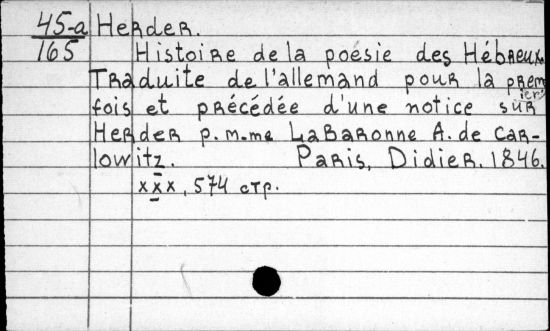 45-a Herder.
165 Histoire de la poésie des Hébreux.
Traduite de l'allemand pour la prem
ière
fois et précédée d'une notice sur
Herder p. m-me LaBaronne A. de Car-
lowitz. Paris, Didier. 1846.
xxx, 574 стр.